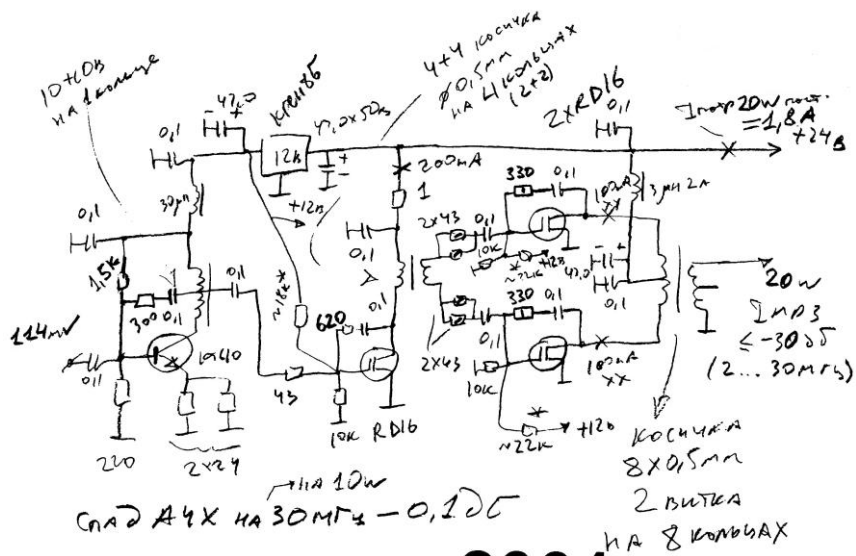 10+10В
на 1 кольце
0,1
47,0
КРЕН8Б
12В
47,0х50В
4+4 косичка
⌀0,5мм
на 4 кольцах
(2+2)
2хRD16
0,1
Iпотр 20W пост.
=1,8А
+24В
200мА
1
30μн
+12В
0,1
0,1
1,5К
300
0,1
0,1
114mV
0,1
220
2х24
43
620
0,1
10К
RD16
2х43
0,1
10К
330
0,1
100мА
ХХ
~22К
*
+12В
3μН 2А
47,0
0,1
2х43
0,1
10К
330
0,1
100мА
ХХ
*
~22К
+12В
20W
IMD3
≤-30дб
(2...30мгц)
косичка
8х0,5мм
2 витка
на 8 кольцах
на 10W
Спад АЧХ на 30мгц - 0,1дб